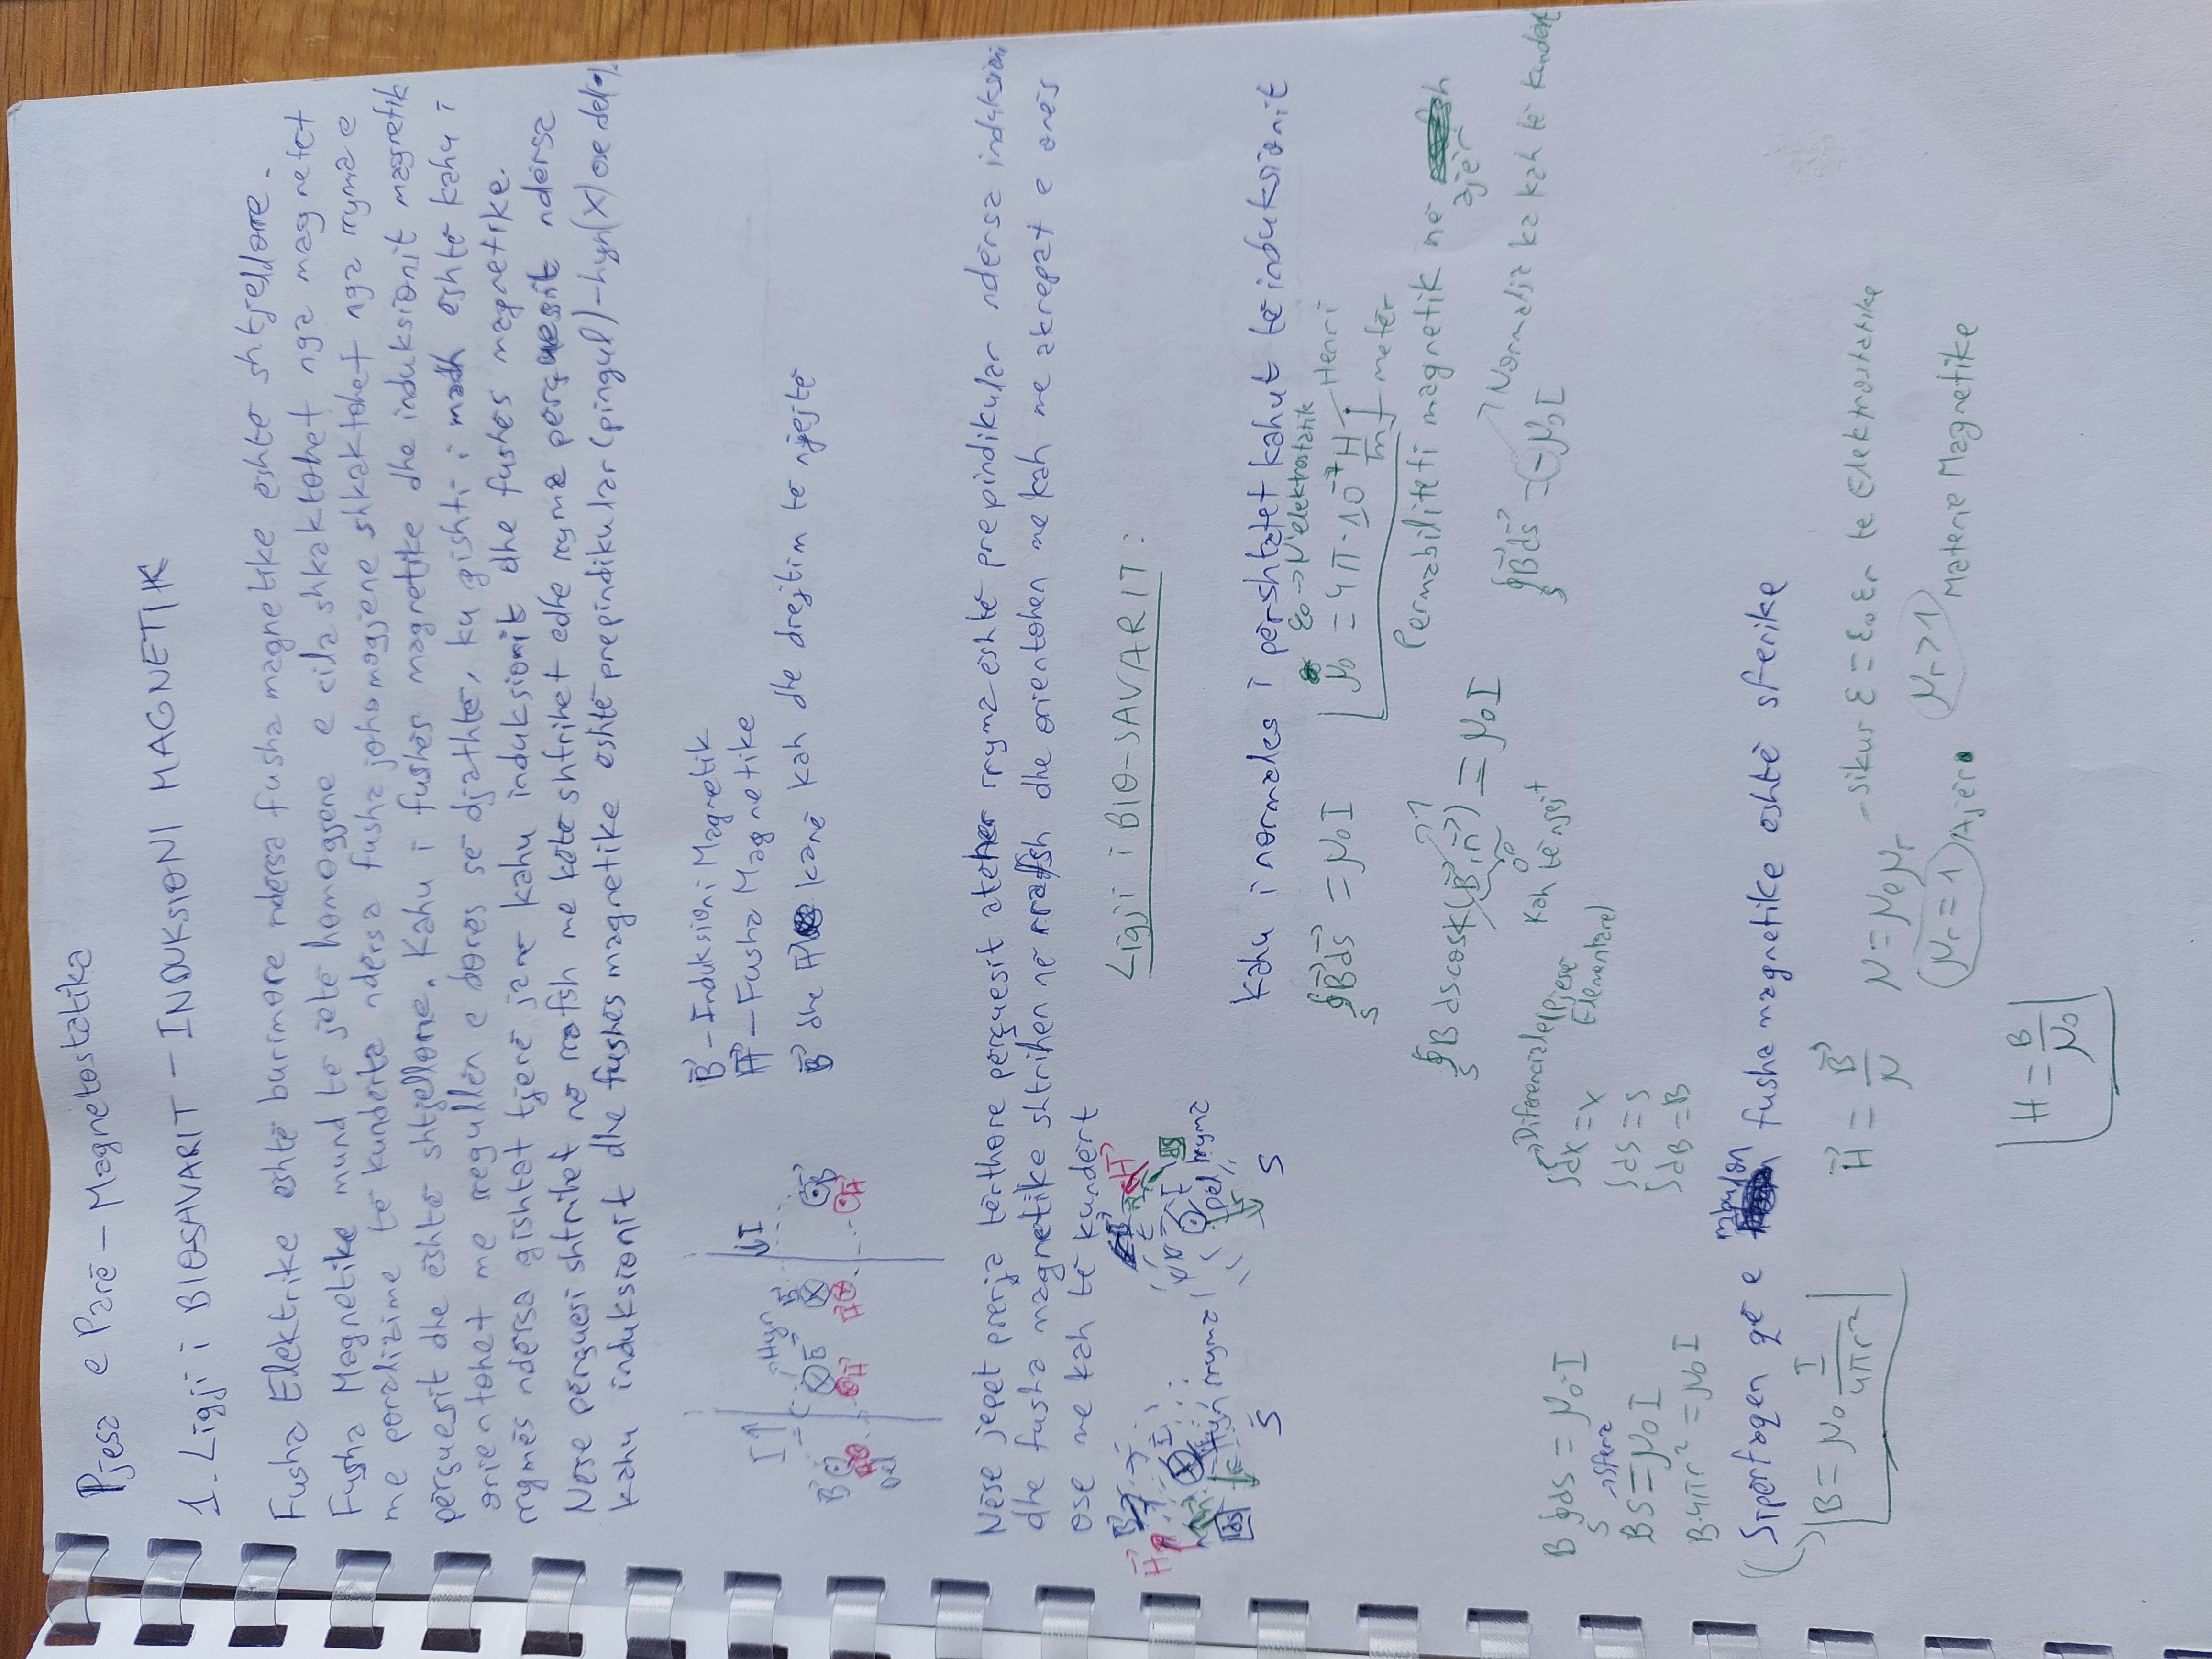 Pjesa e Parë - Magnetostatika
1. Ligji i BIO-SAVARIT - INDUKSIONI MAGNETIK
Fusha Elektrike është burimore ndërsa fusha magnetike është shtjellore.
Fusha Magnetike mund të jetë homogjene e cila shkaktohet nga magnetet
me poralizime të kundërta ndërsa fusha johomogjene shkaktohet nga rryma e
përçuesit dhe është shtjellore. Kahu i fushës magnetike dhe induksionit magnetik
orientohet me rregullën e dorës së djathtë, ku gishti i madh është kahu i
rrymës ndërsa gishtat tjerë janë kahu induksionit dhe fushës magnetike.
Nëse përçuesi shtrihet në rrafsh me këtë shtrihet edhe rryma përçuesit ndërsa
kahu induksionit dhe fushës magnetike është prepindikular (pingul) - hyn(X) ose del(•).
B⃗ - Induksioni Magnetik
H⃗ - Fusha Magnetike
B⃗ dhe H⃗ kanë kah dhe drejtim të njejtë
I Hyn B⃗ I
B⃗ B⃗ B⃗
H⃗ H⃗ H⃗ H⃗
Del
Nëse jepet prerja tërthore përçuesit atëher rryma është prepindikular ndërsa induksioni
dhe fusha magnetike shtrihen në rrafsh dhe orientohen me kah me akrepat e orës
ose me kah të kundërt
H⃗ B⃗ I ds r Hyn rryma S
B⃗ H⃗ n⃗ ds I Del rryma r S
Ligji i BIO-SAVARIT:
Kahu i normales i përshtatet kahut të induksionit
∮s B⃗ds⃗ = μ0 I
ε0 → N'elektrostatik
μ0 = 4π·10⁻⁷ H/m
Henri
metër
Permabiliteti magnetik në ajër
∮s B ds cos∢(B⃗,n⃗) = μ0 I
1
0°
Kah të njejt
∮s B⃗ds⃗ = -μ0 I
Normalja ka kah të kundërt
B ∮s ds = μ0·I
→ Sfera
BS = μ0 I
B·4πr² = μ0 I
→ Diferenciale (Pjesë Elementare)
∫dx = x
∫ds = s
∫dB = B
Sipërfaqen që e mbulon fusha magnetike është sferike
B = μ0 I/4πr²
H⃗ = B⃗/μ
μ = μ0 μr - sikur ε = ε0 εr te Elektrostatike
μr = 1 Ajër
μr > 1 Materie Magnetike
H = B/μ0